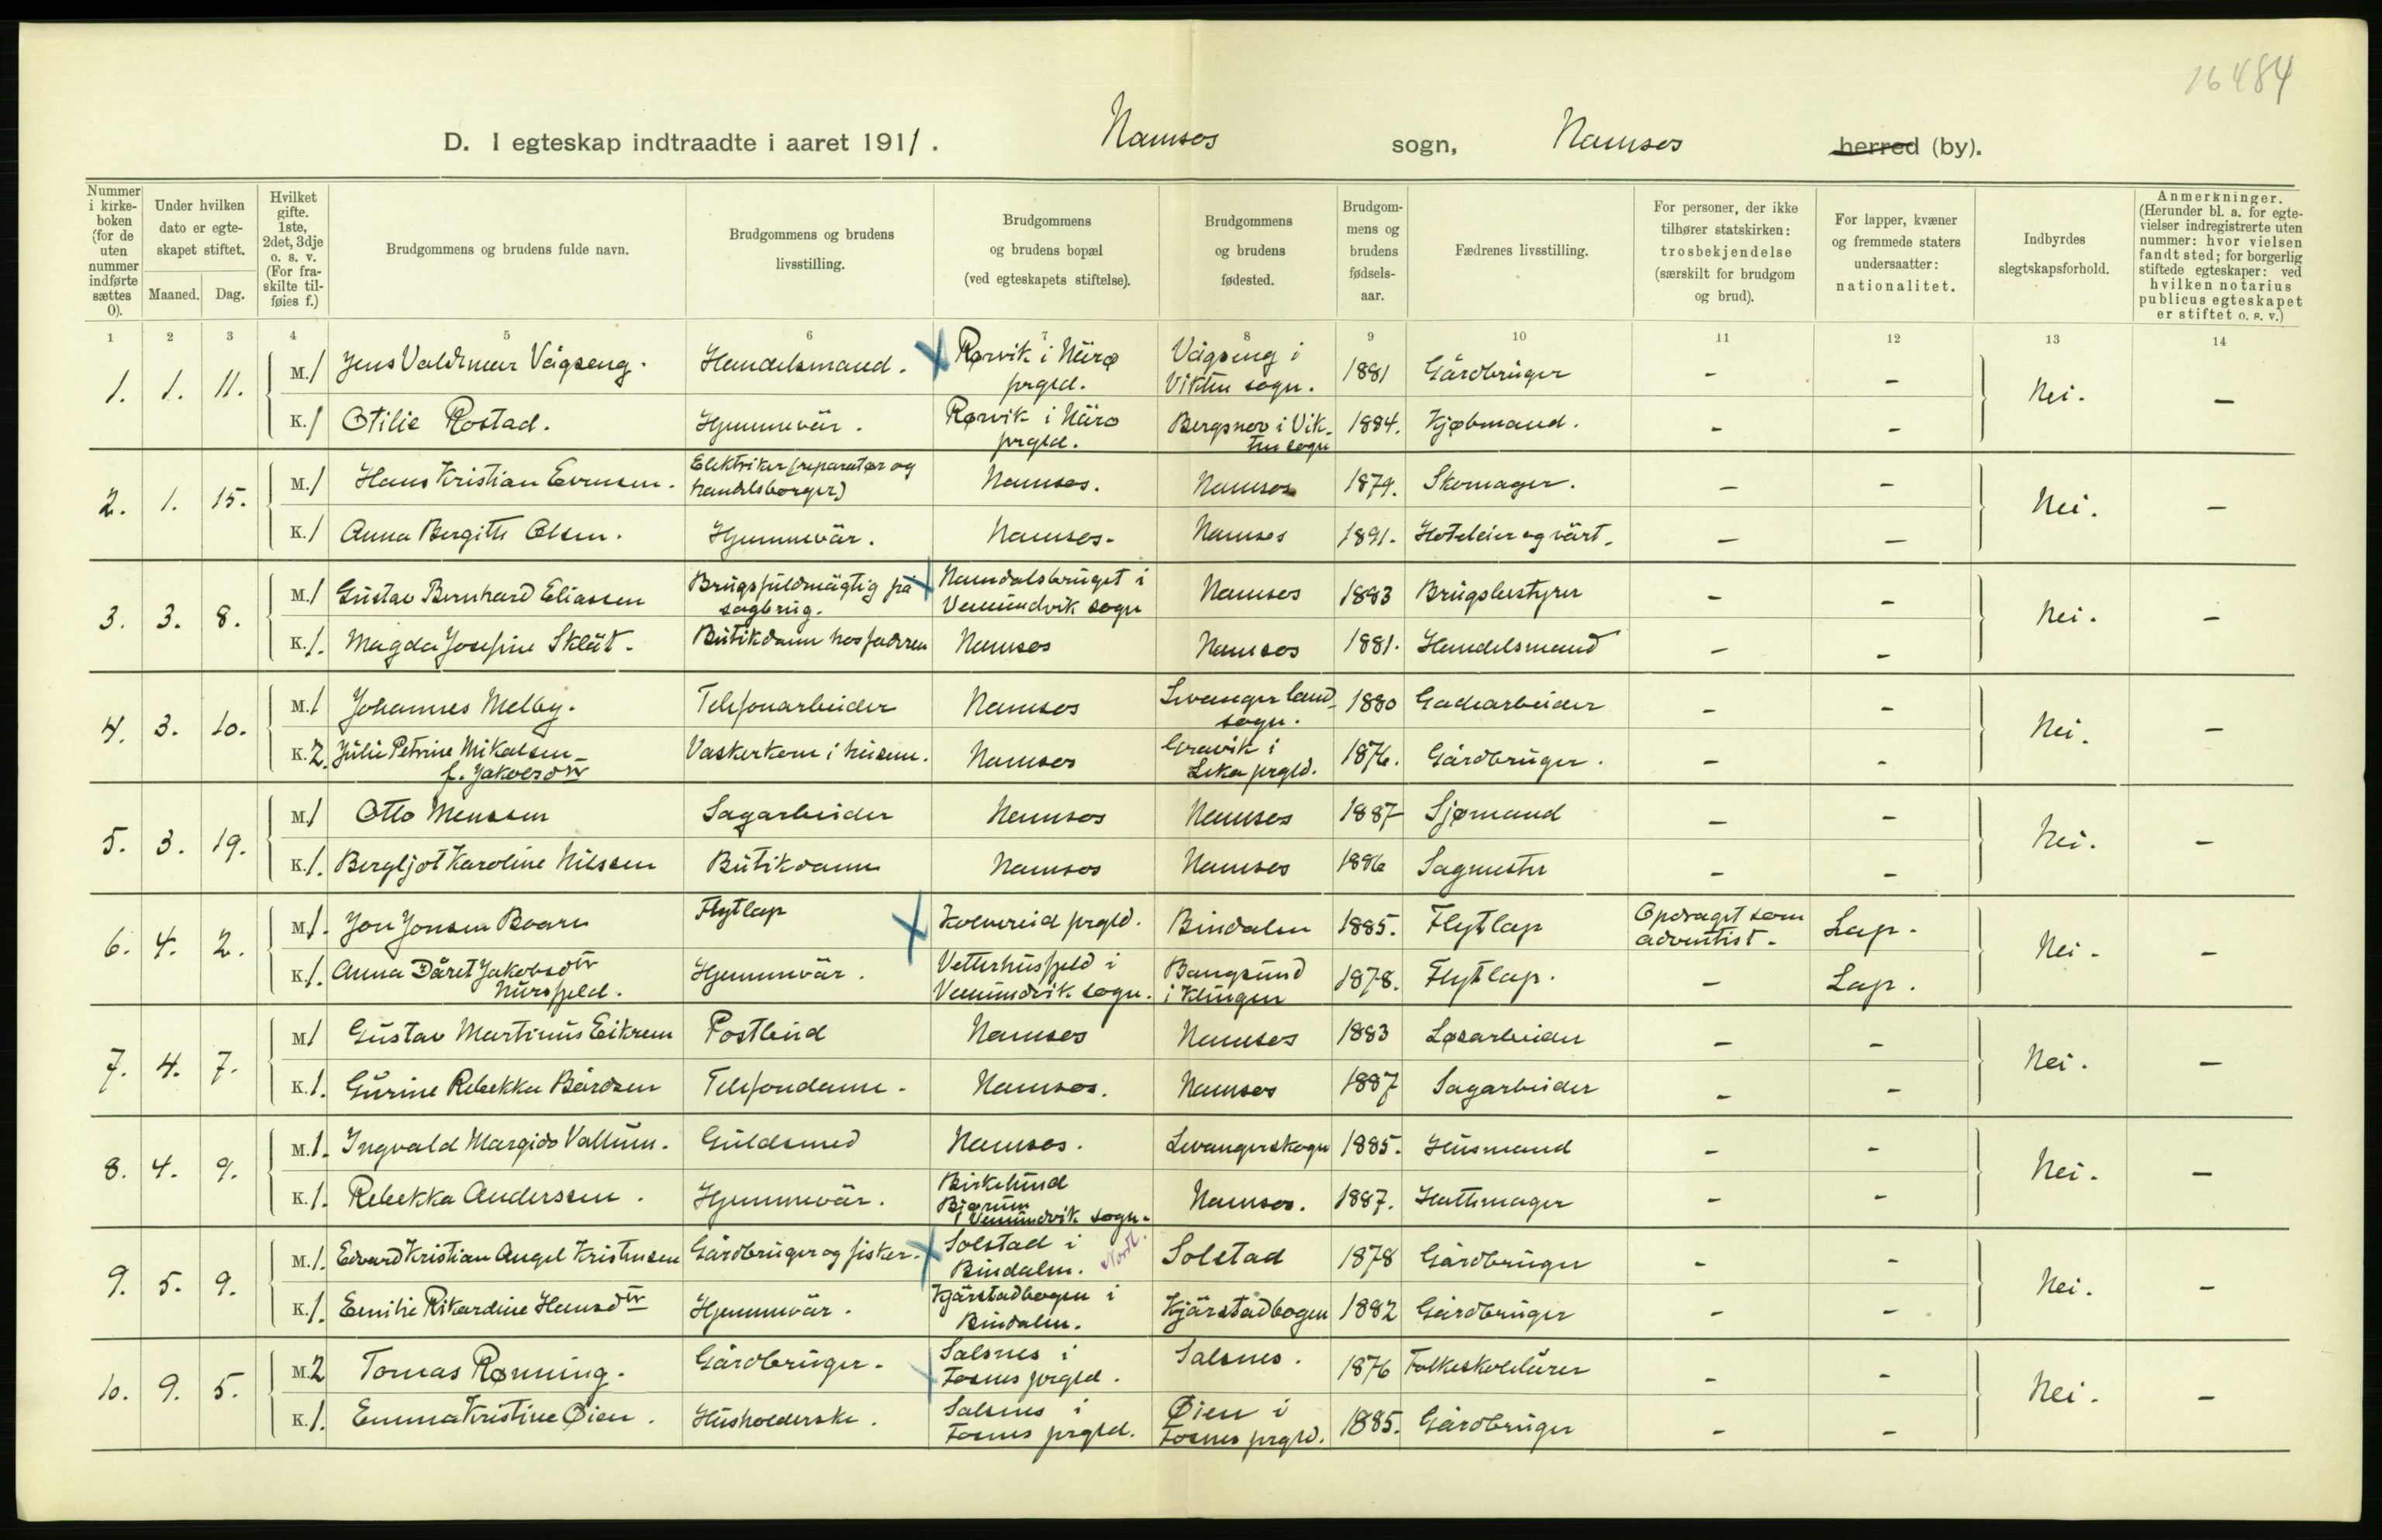 16484
D. I egteskap indtraadte i aaret 1911. Namsos sogn, Namsos herred (by).
Nummer i kirkeboken (for de uten nummer indførte sættes 0).
Under hvilken dato er egteskapet stiftet.
Maaned. Dag.
Hvilket gifte. 1ste, 2det, 3dje o. s. v. (For fraskilte tilføies f.)
Brudgommens og brudens fulde navn.
Brudgommens og brudens livsstilling.
Brudgommens og brudens bopæl (ved egteskapets stiftelse).
Brudgommens og brudens fødested.
Brudgommens og brudens fødselsaar.
Fædrenes livsstilling.
For personer, der ikke tilhører statskirken: trosbekjendelse (særskilt for brudgom og brud).
For lapper, kvæner og fremmede staters undersaatter: nationalitet.
Indbyrdes slegtskapsforhold.
Anmerkninger. (Herunder bl. a. for egtevielser indregistrerte uten nummer: hvor vielsen fandt sted; for borgerlig stiftede egteskaper: ved hvilken notarius publicus egteskapet er stiftet o. s. v.)
1 2 3 4 5 6 7 8 9 10 11 12 13 14
1. 1. 11. M. 1 Jens Valdemar Vågseng. Handelsmand. Rørvik i Närø prgld. Vågseng i Vikten sogn. 1881 Gårdbruger - - Nei. -
K. 1 Otilie Rostad. Hjemmevär. Rørvik i Närø prgld. i Vikten sogn 1884. Kjøbmand. - -
2. 1. 15. M. 1 Hans Kristian Evensen. Elektriker (reparatør og handelsborger) Namsos. Namsos 1879. Skomager. - - Nei. -
K. 1 Anna Bergitte Olsen. Hjemmevär. Namsos. Namsos 1891. Hoteleier og värt. - -
3. 3. 8. M. 1 Gustav Bernhard Eliassen Brugsfuldmägtig på sagbrug. Namdalsbruget i Vemundvik sogn Namsos 1883 Brugsbestyrer - - Nei. -
K. 1. Magda Josefine Sklät. Butikdame hos faderen Namsos Namsos 1881. Handelsmand - -
4. 3. 10. M. 1 Johannes Melby. Telefonarbeider Namsos Levanger landsogn. 1880 Gadearbeider - - Nei. -
K. 2. Julie Petrine Mikalsen f. Jakobsdtr Vaskerkone i husene. Namsos Gravik i Leka prgld. 1876. Gårdbruger. - -
5. 3. 19. M. 1 Otto Monssen Sagarbeider Namsos Namsos 1887 Sjømand - - Nei. -
K. 1. Bergljot Karoline Nilssen Butikdame Namsos Namsos 1886 Sagmester - -
6. 4. 2. M. 1. Jon Jonsen Flytlap Kolvereid prgld. Bindalen 1885. Flytlap Opdraget som adventist. Lap. Nei. -
K. 1. Anna Däret Jakobsdtr Hjemmevär. Vetterhusfjeld i Vemundvik sogn. Bangsund i Klingen 1878. Flytlap. - Lap.
7. 4. 7. M. 1 Gustav Martinus Eikrem Postbud Namsos Namsos 1883 Løsarbeider - - Nei. -
K. 1. Gurine Rebekka Bårdsen Telefondame. Namsos. Namsos 1887 Sagarbeider - -
8. 4. 9. M. 1. Ingvald Margido Vallum. Guldsmed Namsos. Levangerskogn 1885. Husmand - - Nei. -
K. 1. Rebekka Anderssen. Hjemmevär. Birkelund Bjørum i Vemundvik sogn. Namsos. 1887. Hattemager - -
9. 5. 9. M. 1. Edvard Kristian Angel Kristensen Gårdbruger og fisker. Solstad i Bindalen. Nordl. Solstad 1878 Gårdbruger - - Nei. -
K. 1. Emilie Rikardine Hansdtr Hjemmevär. Kjärstadbogen i Bindalen. Kjärstadbogen 1882 Gårdbruger - -
10. 9. 5. M. 2 Tomas Rønning. Gårdbruger. Salsnes i Fosnes prgld. Salsnes. 1876 Folkeskolelärer - - Nei. -
K. 1. Emma Kristine Øien. Husholderske. Salsnes i Fosnes prgld. Øien i Fosnes prgld. 1885. Gårdbruger - -